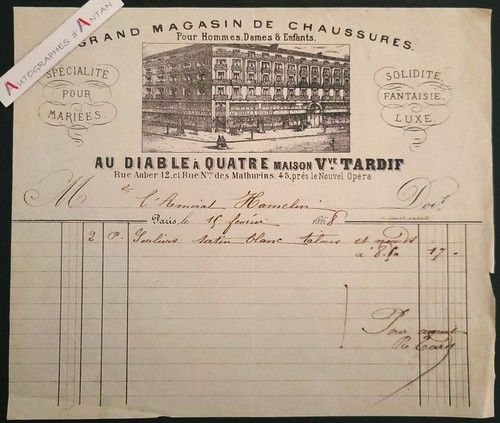 AUTOGRAPHES d'ANTAN
GRAND MAGASIN DE CHAUSSURES.
Pour Hommes, Dames & Enfants.
SPÉCIALITÉ
POUR
MARIÉES.
SOLIDITÉ,
FANTAISIE,
LUXE
AU DIABLE À QUATRE MAISON Vve. TARDIF
Rue Auber 12, et Rue Nve. des Mathurins. 45, près le Nouvel Opéra
M l'Amiral Hamelin Doit
Paris, le 15 février 1868
2 P. Souliers satin blanc talons et nœuds
à 8.50 17 -
Pour